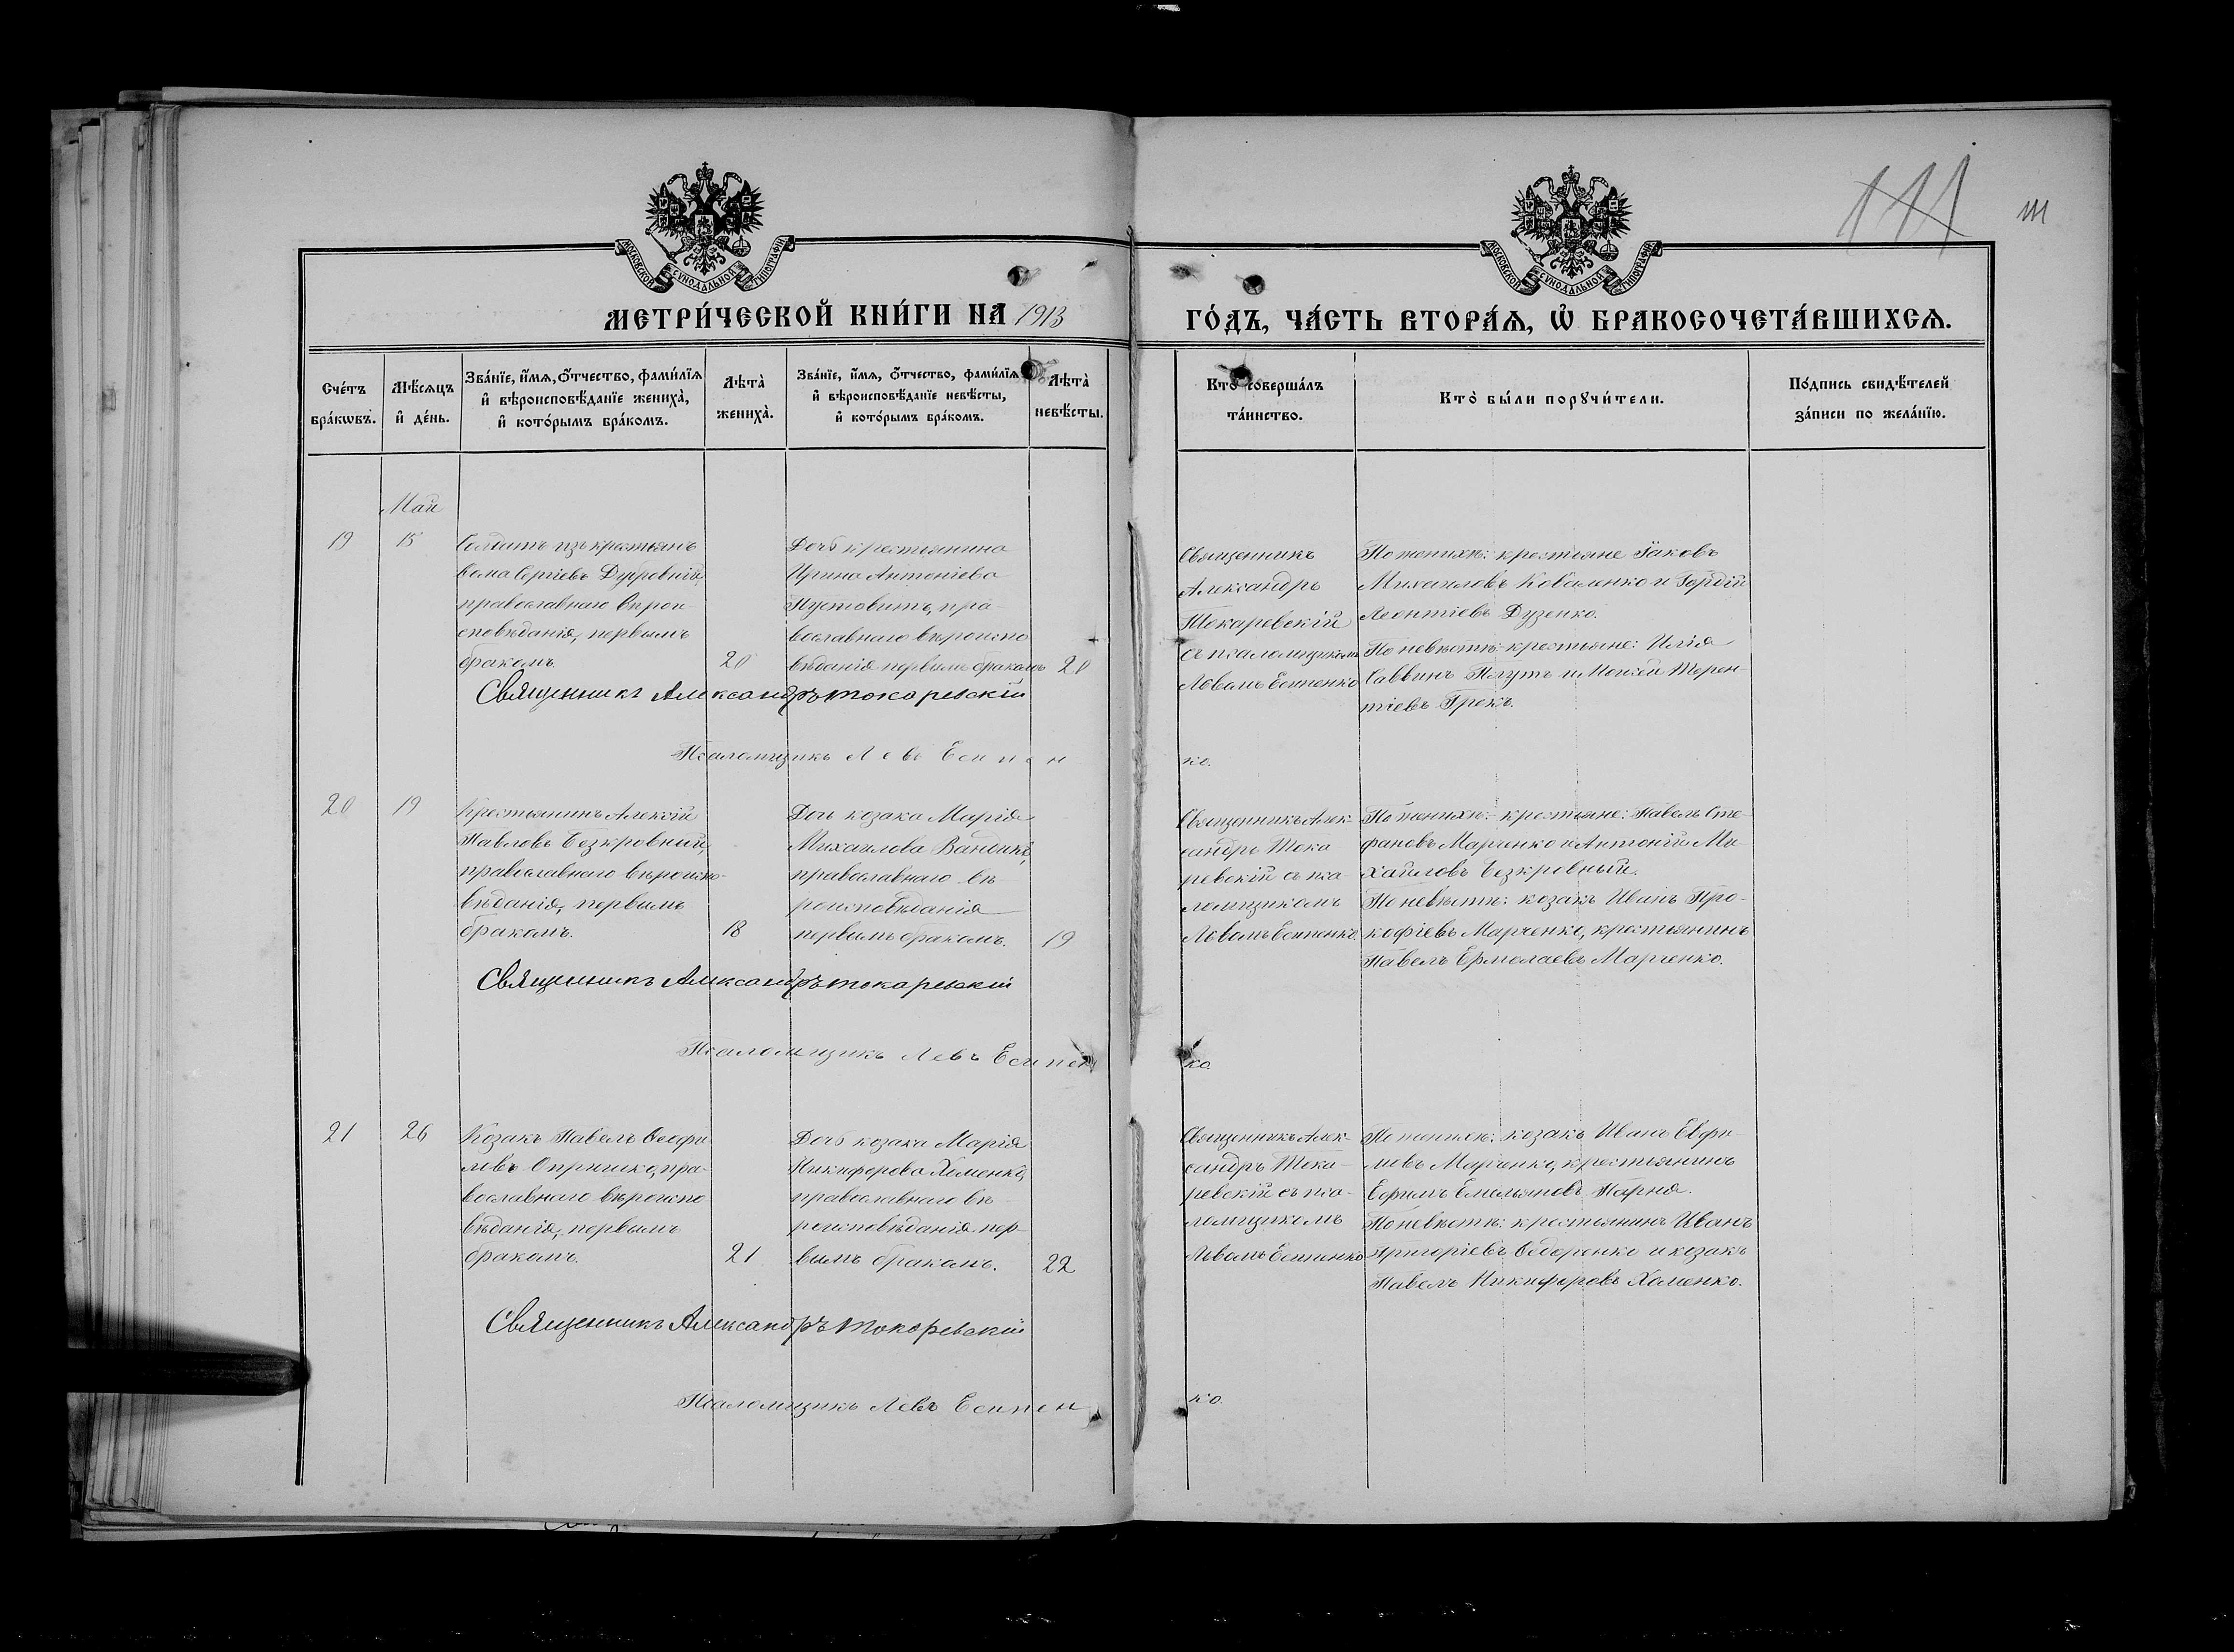 111 111
МОСКОВСКОЙ СѴНОДАЛЬНОЙ ТИПОГРАФІИ
МОСКОВСКОЙ СѴНОДАЛЬНОЙ ТИПОГРАФІИ
МЕТРИ́ЧЕСКОЙ КНИ́ГИ НА 1913 ГО́ДЪ, ЧА́СТЬ ВТОРА́Ѧ, Ѡ҆ БРАКОСОЧЕТА́ВШИХСѦ.
Сче́тъ бра́кѡвъ.
Мѣ́сѧцъ и҆ де́нь.
Зва́нїе, и҆́мѧ, ѻ҆́тчество, фами́лїѧ и҆ вѣроисповѣ́данїе жениха̀, и҆ кото́рымъ бра́комъ.
Лѣта̀ жениха̀.
Зва́нїе, и҆́мѧ, ѻ҆́тчество, фами́лїѧ и҆ вѣроисповѣ́данїе невѣ́сты, и҆ кото́рымъ бра́комъ.
Лѣта̀ невѣ́сты.
Кто̀ соверша́лъ та́инство.
Кто̀ бы́ли порꙋчи́тели.
По́дпись свидѣ́телей за́писи по жела́нїю.
Май
19
15
Солдатъ изъ крестьянъ
Ѳома Сергіевъ
православнаго вѣрои-
сповѣданія, первымъ
бракомъ.
20
Дочь крестьянина
Ирина Антоніева
Пустовитъ, пра-
вославнаго вѣроиспо
вѣданія первымъ бракомъ
20
Священникъ
Александръ
Токаревскій
съ псаломщикомъ
Львомъ Есипенко
По женихѣ: крестьяне Іаковъ
Михаиловъ Коваленко и Гордій
Леонтіевъ Дузенко.
По невѣстѣ: крестьяне: Илія
Саввинъ Плутъ и Моисей Терен-
тіевъ Грекъ.
Священникъ Александръ Токаревскій
Псаломщикъ Левъ Есипенко.
20
19
Крестьянинъ Алексій
Павловъ Безкровный,
православнаго вѣроиспо-
вѣданія, первымъ
бракомъ.
18
Дочь козака Марія
Михаилова
православнаго вѣ-
роисповѣданія
первымъ бракомъ.
19
Священникъ Алек-
сандръ Тока
ревскій съ пса-
ломщикомъ
Львомъ Есипенко.
По женихѣ: крестьяне: Павелъ Сте-
фановъ Марченко и Антоній Ми-
хайловъ Безкровный.
По невѣстѣ: козакъ Иванъ Про-
кофіевъ Марченко, крестьянинъ
Павелъ Ермолаевъ Марченко.
Священникъ Александръ Токаревскій
Псаломщикъ Левъ Есипенко.
21
26
Козакъ Павелъ Ѳеофи
ловъ Опришко, пра-
вославнаго вѣроиспо
вѣданія, первымъ
бракомъ.
21
Дочь козака Марія
Никифорова Хоменко,
православнаго вѣ
роисповѣданія пер-
вымъ бракомъ.
22
Священникъ Алек-
сандръ Тока-
ревскій съ пса-
ломщикомъ
Львомъ Есипенко
По женихѣ: козакъ Иванъ Евфи-
мовъ Марченко, крестьянинъ
Ефимъ Емельяновъ Парня.
По невѣстѣ: крестьянинъ Иванъ
Григоріевъ Ѳедоренко и козакъ
Павелъ Никифоровъ Хоменко.
Священникъ Александръ Токаревскій
Псаломщикъ Левъ Есипенко.